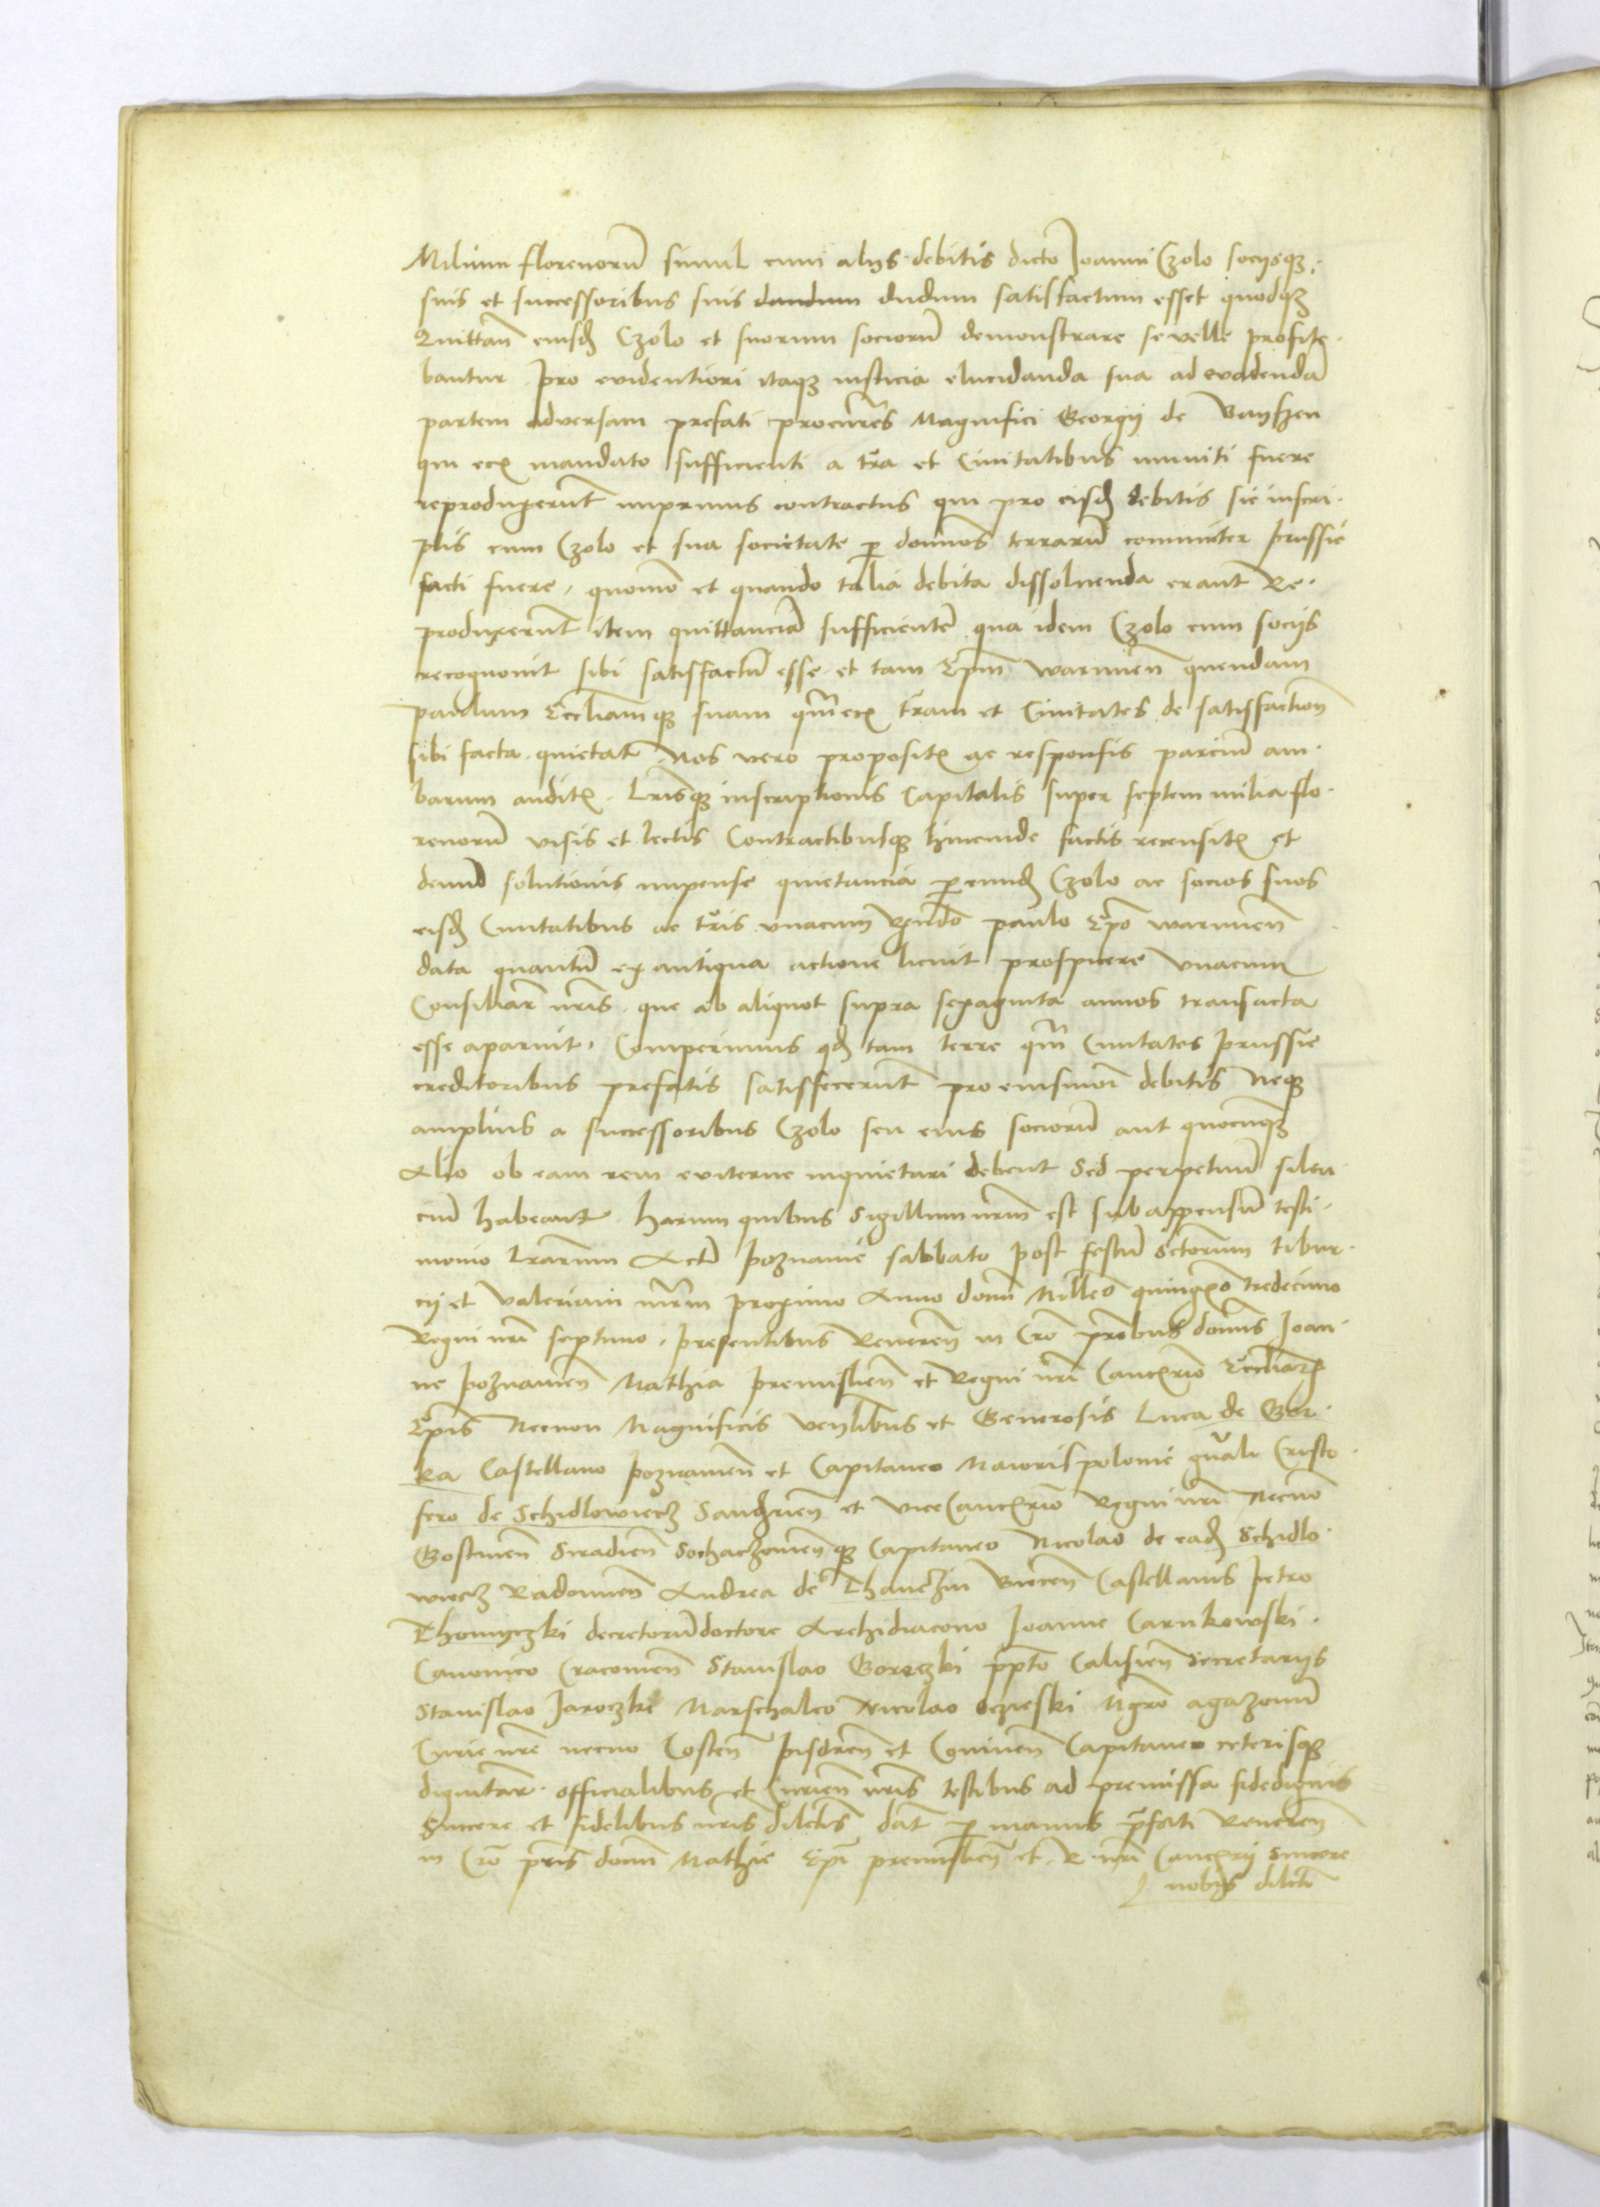 Milium florenorū simul cum alijs debitis dicto Joanni Czolo socijsqꝫ
suis et successoribus suis dandum dudum satisfactum esset quodqꝫ
Quittañ eiusdē Czolo et suorum sociorū demonstrare se velle profite-
bantur Pro evidentiori itaqꝫ iusticia elucidanda sua ad evadendā
partem adversam prefati procures Magnifici Georgij de Bayszen
qui mandato sufficienti a tra et Civitatibus muniti fuere
reproduxerunt inprimis contractus qui pro eisdē debitis sic inscri-
ptis cum Czolo et sua societate ꝑ dominos terrarū communiter Prussie
facti fuere, quomō et quando talia debita dissoluenda erant Re-
produxerunt item quittanciā sufficientē qua idem Czolo cum socijs
recognovit sibi satisfactū esse et tam Epm̄ warmieñ quendam
paulum Eccliamqꝫ suam qm̄ tram et Civitates de satisfactioñ
sibi facta quietat Nos vero propositis ac responsis parciū am-
barum auditis Lrisqꝫ inscriptionis Capitalis super septem milia flo-
renorū visis et lectis Contractibusqꝫ hincinde factis recensitis et
demū solutionis impense quietancia ꝑ eundē Czolo ac socios suos
eisdē Civitatibus ac tris vnacum Rndo paulo Epo warmieñ
data quantū ex antiqua actione licuit prospicere vnacum
Consiliar nris que ab aliquot supra sexaginta annos transacta
esse aparuit, Comperimus qd tam terre qm̄ Civitates Prussie
creditoribus prefatis satisfecerunt pro eiusmoi debitis Neqꝫ
amplius a successoribus Czolo seu eius sociorū aut quocunqꝫ
Alio ob eam rem eviterne inquietari debent Sed perpetuū silen-
ciū habeant Harum quibus Sigillum nrm est subappensū testi-
monio Lrarum Actū Poznanie sabbato post festū Sctorum Tibur-
cij et Valeriani mrm proximo Anno domi Millēo quingēo tredecimo
Regni nri septimo, Presentibus Reverēn in Cro prebus dominis Joan-
ne Poznanieñ Mathia Premislieñ et Regni nri Cancrio Ecclīarꝫ
Epis Necnon Magnificis venlibus et Generosis Luca de Gor-
ka Castellano Poznanieñ et Capitaneo Maioris polonie gnali Cristo-
fero de Schidlowiecz Sandrieñ et vicecancrio Regni nri Necnō
Gostineñ Siradieñ Sochaczovieñqꝫ Capitaneo Nicolao de eadē Schidlo-
wiecz Radomieñ Andrea de Thanczin Bieceñ Castellanis Petro
Thomyczki decretorū doctore Archidiacono Joanne Carnkowski
Canonico Cracovieñ Stanislao Goreczki ppto Calisieñ Secretarijs
Stanislao Jaroczki Marschalco Nicolao Mgro agazonū
Curie nre necno Costeñ Pisdreñ et Conineñ Capitaneo ceterisqꝫ
dignitar officialibus et Curieñ nris testibus ad premissa fidedignis
Sincere et fidelibus nris dilctis dat ꝑ manus pfati Revereñ
in Cro pris domi Mathie Epi premislieñ et R nri Cancrij Sincere
nobis dilcti